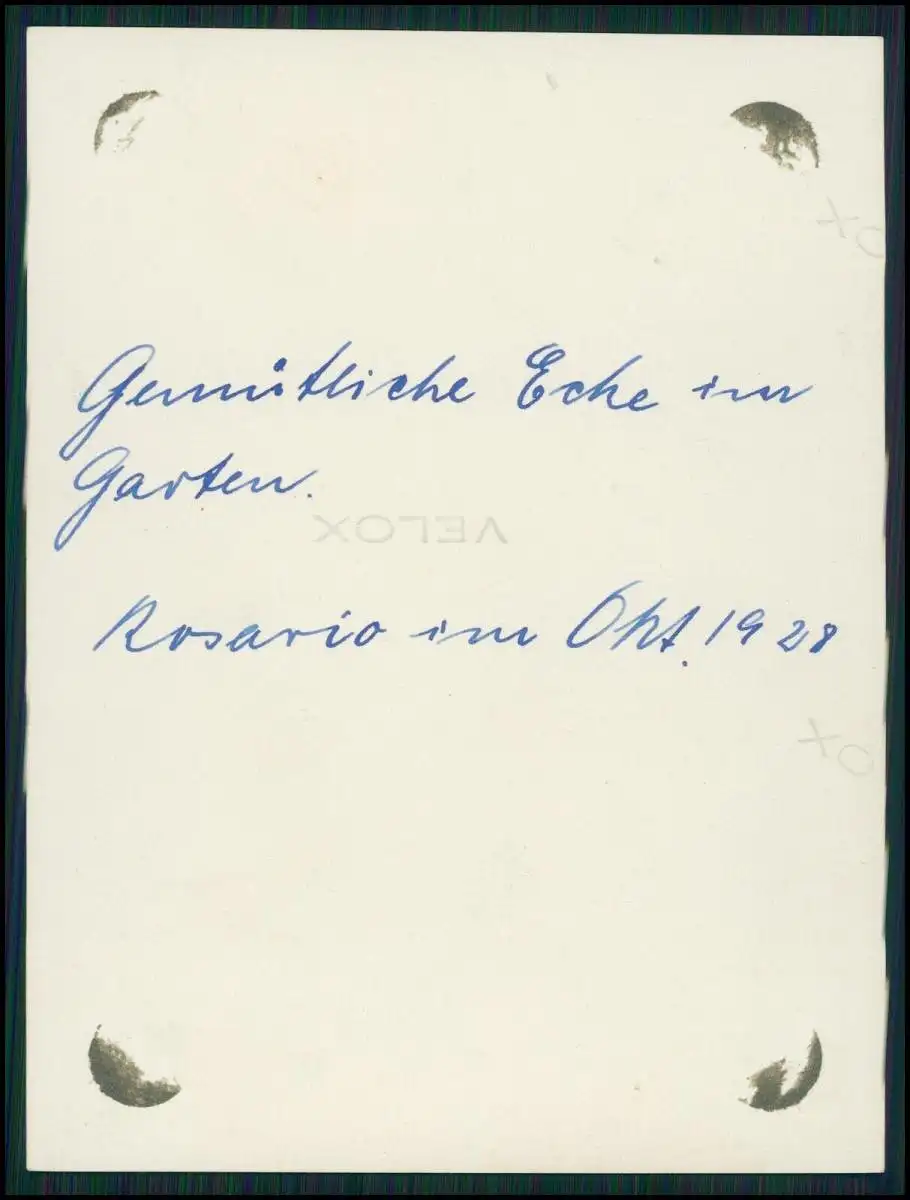 Gemütliche Ecke im
Garten.
VELOX
Rosario im Okt. 1928
OX
OX